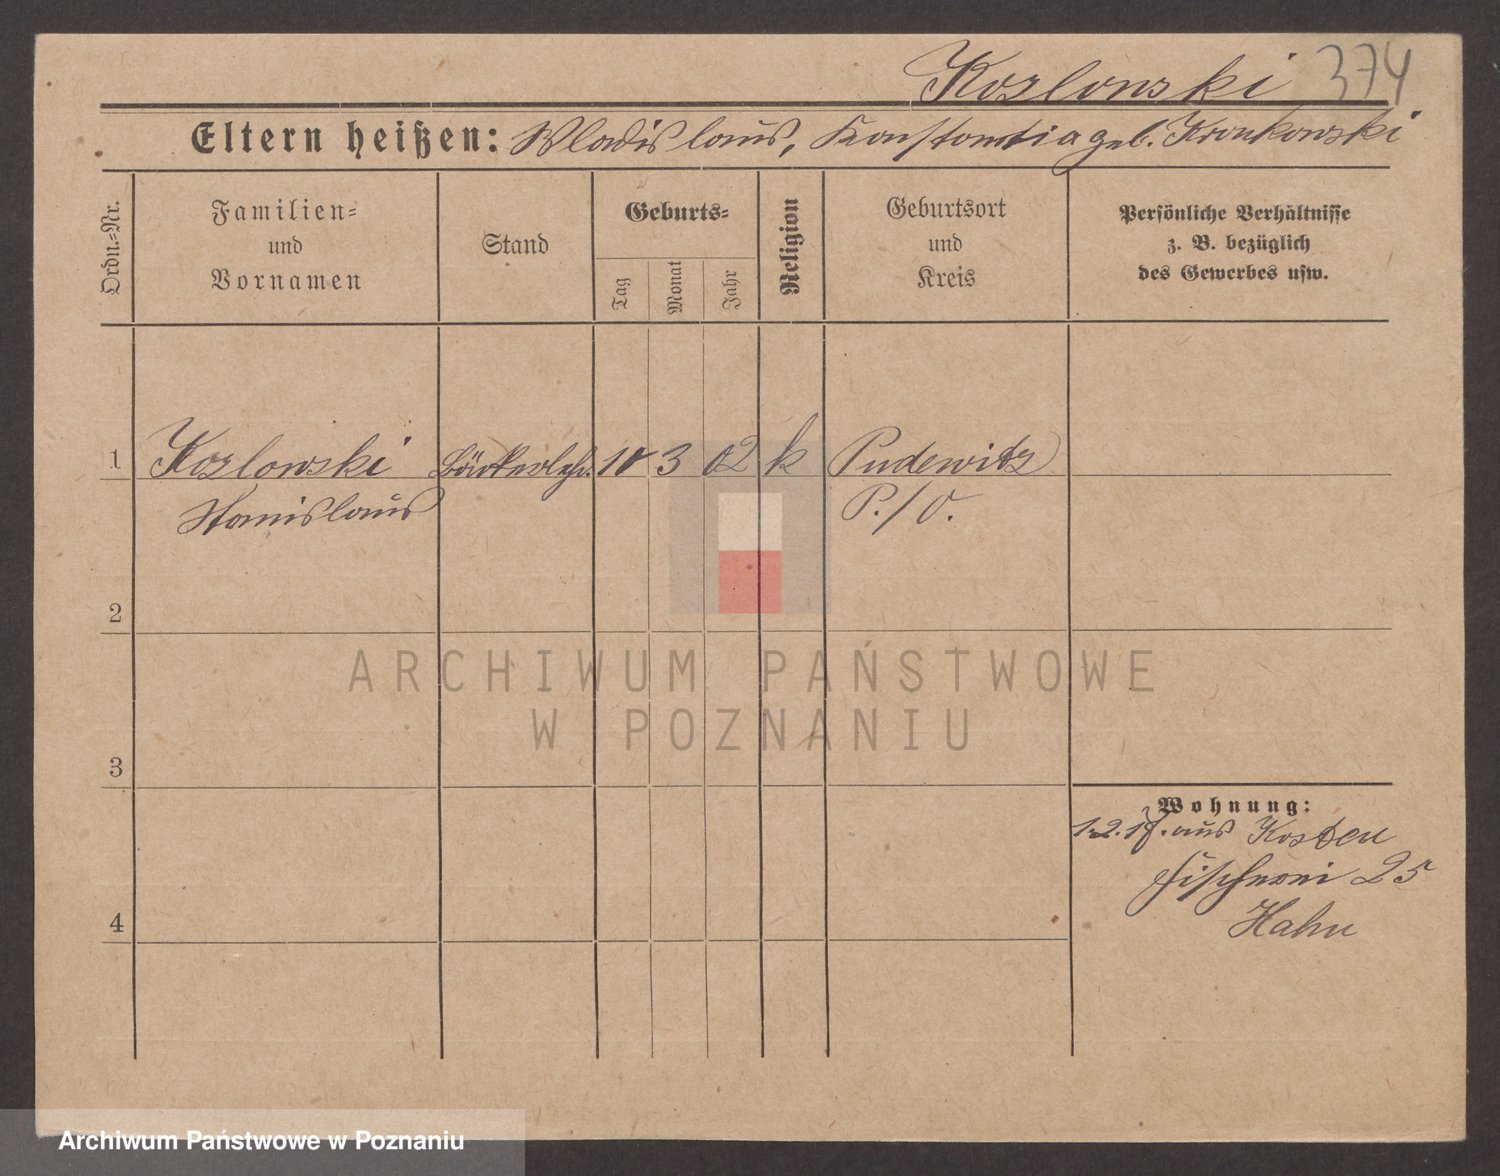 Kozlowski 374
Eltern heißen: Wladislaus, Konstantia geb. Kronkowski
Ordn.=Nr.
Familien=
und
Vornamen
Stand
Geburts=
Tag
Monat
Jahr
Religion
Geburtsort
und
Kreis
Persönliche Verhältnisse
z. B. bezüglich
des Gewerbes usw.
1 Kozlowski Bäckerlehr. 10 3 02 k Pudewitz
Stanislaus P./O.
2
3
4
Wohnung:
1.2.17. aus Kosten
Fischerei 25
Hahn
ARCHIWUM PAŃSTWOWE
W POZNANIU
Archiwum Państwowe w Poznaniu